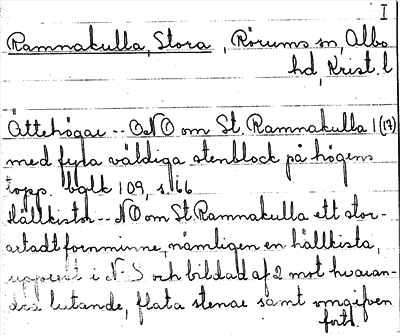 I
Ramnakulla, Stora, Rörums sn, Albo
hd, Krist. l
Ättehögar -- ONO om St. Ramnakulla 1 (17)
med fyra väldiga stenblock på högens
topp. bglk 109, s. 66
Hällkistor -- NO om St. Ramnakulla ett stor-
artadt fornminne, nämligen en hällkista,
uppväxt i N-S och bildad af 2 mot hvaran-
dra lutande, flata stenar samt omgifven
forts.